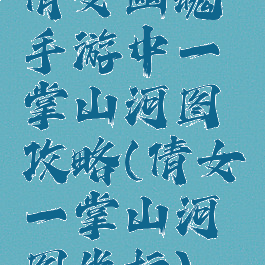 倩女幽魂
手游中一
掌山河图
攻略(倩女
一掌山河
图坐标)